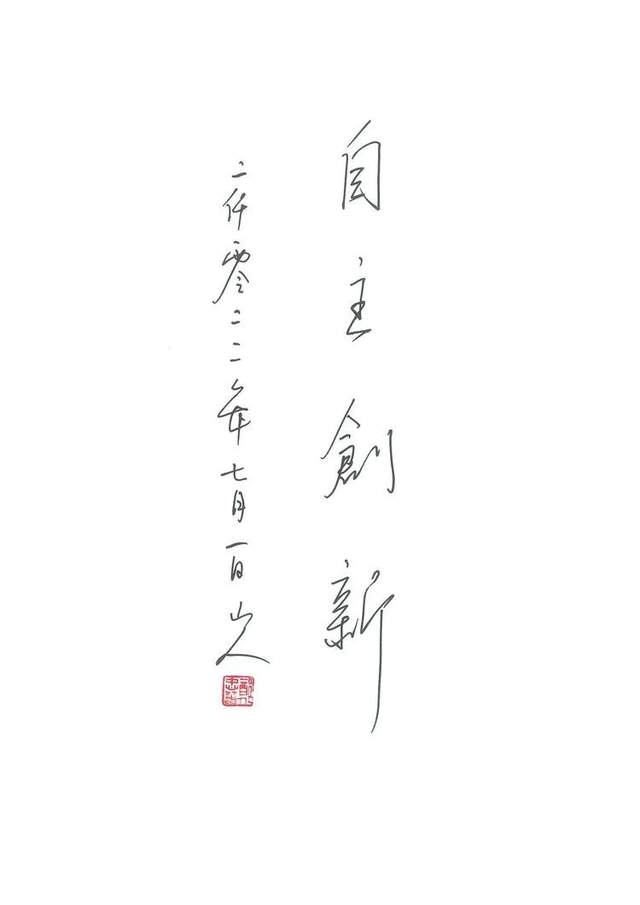 自主創新
二仟零二二年七月一日山人